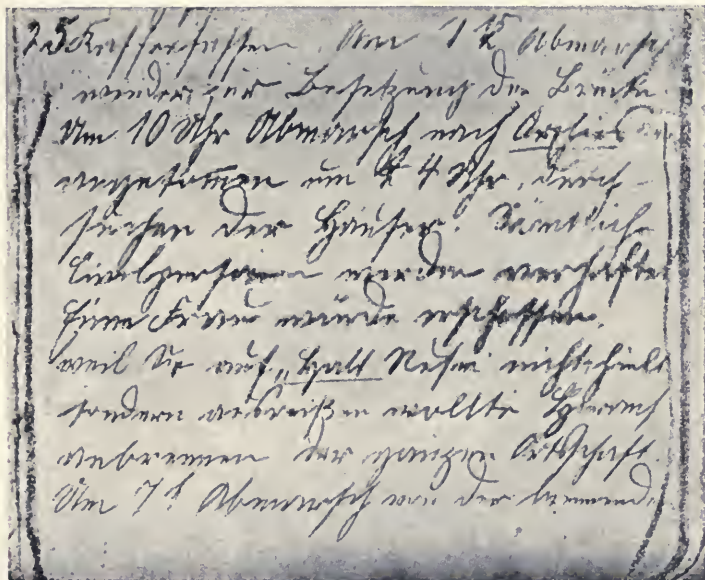 25 Kaffeefassen. Um 1 15 Abmarsch
wieder zur Besetzung der Brücke.
Um 10 Uhr Abmarsch nach
angekommen um 4 Uhr. Durch-
suchen der Häuser. Sämtliche
Civilpersonen werden verhaftet
Eine Frau wurde erschossen,
weil Sie auf „Halt Rufen nicht hielt
sondern ausreißen wollte Hierauf
anbrennen der ganzen Ortschaft.
Um 7 Abmarsch von der